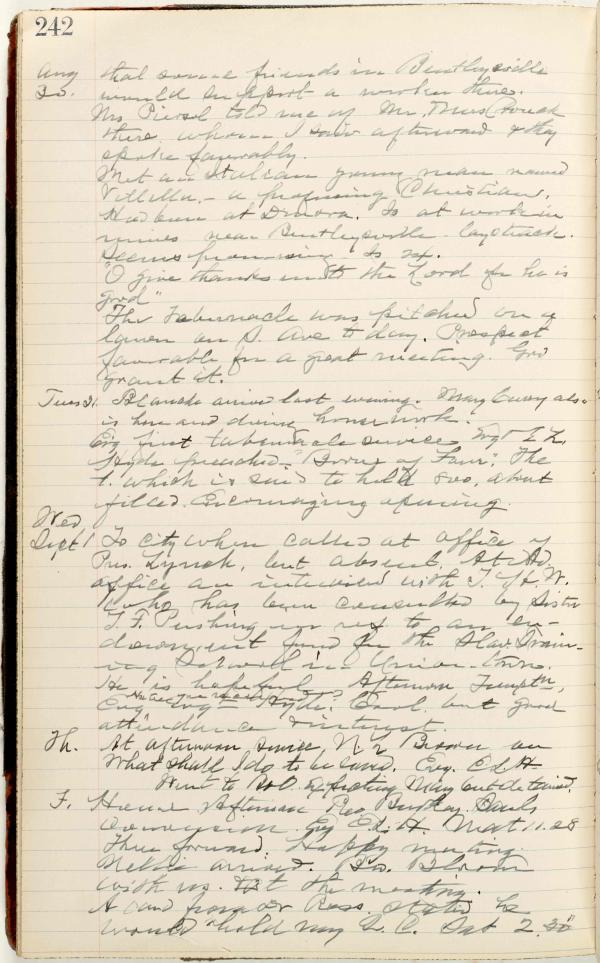 242
Aug that some friends in Bentleysville
30. would support a worker there.
Mrs told me of Mr,
there whom I saw afterward & they
spoke favorably.
Met an Italian young man named
Villilla, - a professing Christian.
Has been at Donora. Is at work in
mines near Bentleysville
Seems promising. Is 24.
"O give thanks unto the Lord for he is
good"
The Tabernacle was pitched on a
lawn on S. Ave to day. Prospect
favorable for a great meeting. God
grant it.
Tues 31. Blanche arrived last evening. Mary also
is here and doing housework.
Evg first tabernacle service. Evgt
Hyde preached "
t. which is said to hold 800, about
filled. Encouraging opening.
Wed
Sept 1 To city when called at office of
Pres. Lynch, but absent. At
office an interview with J.
who has been consulted by Sister
T. F. Pershing in ref to an en-
dowment fund for the Slav. Train-
ing School in Union-town.
He is hopeful. Afternoon
Evg Evgt Hyde. but good
attendance & interest.
Th. At afternoon service, Brown on
What shall I do to be saved. Evg. Ed H
Went to expecting Mary but detained.
F. Home Afternoon Paul's
conversion. Evg Ed. H. Mat 11.28
Three forward. Happy meeting.
Nellie arrived. Bro.
with us. at the meeting.
A card from Dr stated he
would hold my Q. C. Sat 2.30